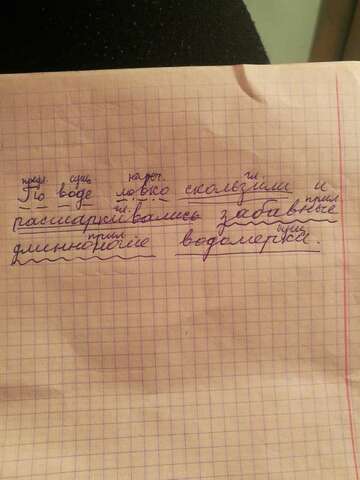 предл. сущ. нареч. гл.
По воде ловко сколезили и
гл. прил.
расшаркивались забавные
прил. сущ.
длинноногие водомерки.